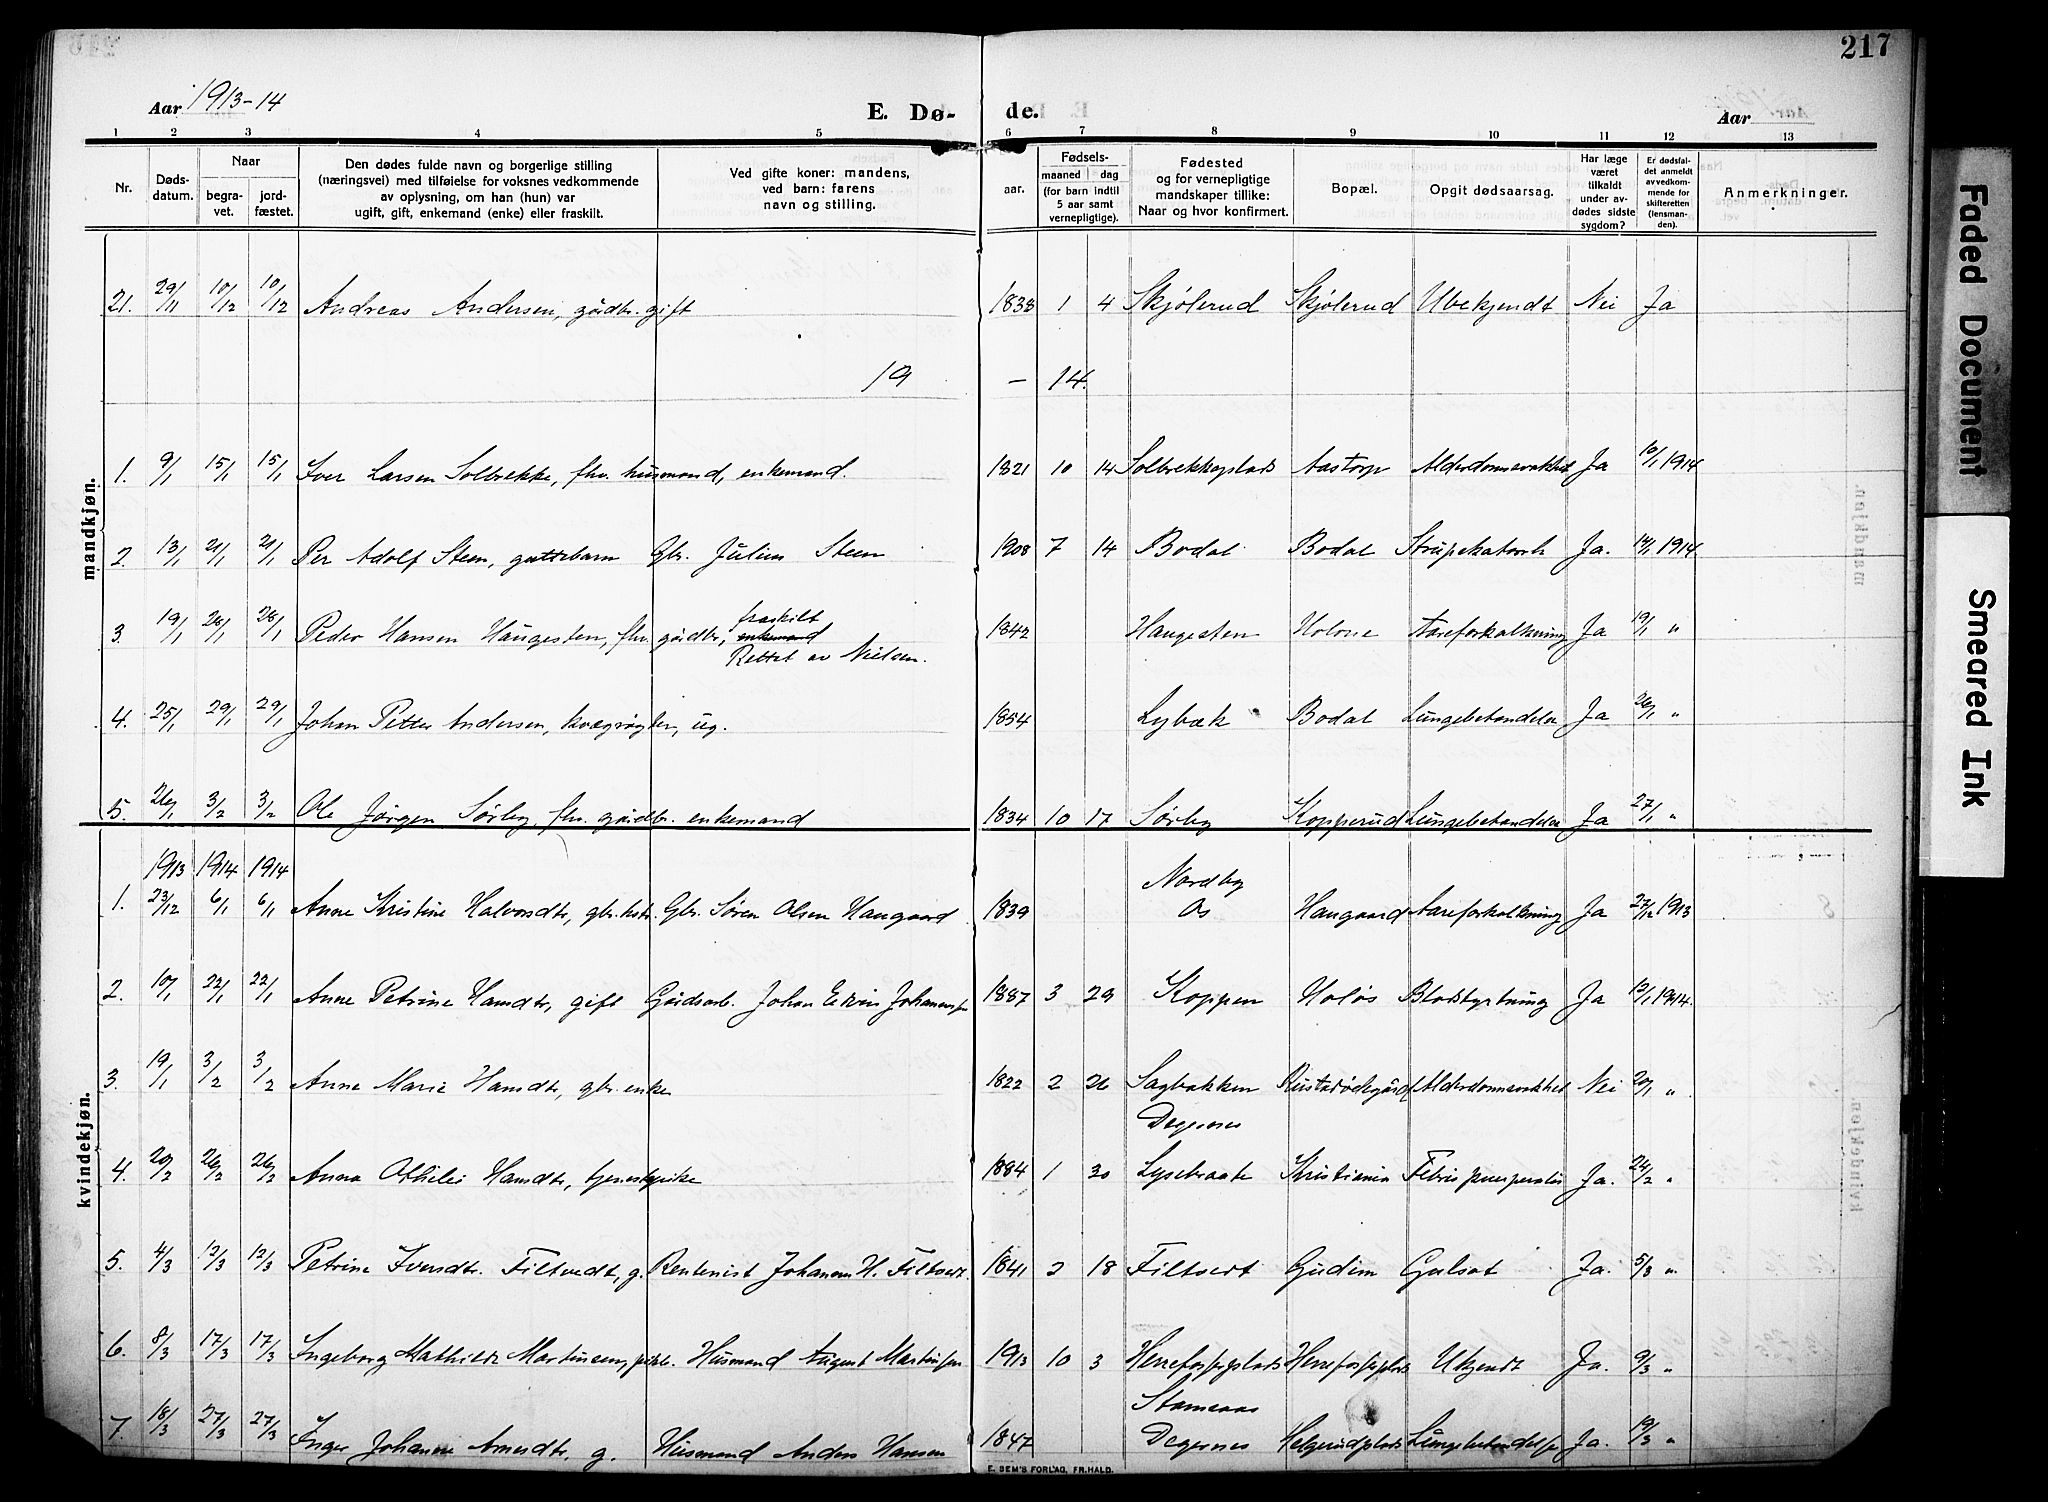 217
Aar 1913-14 E. Dø- de. Aar
1 2 3 4 5 6 7 8 9 10 11 12 13
Nr. Døds-datum. Naar begra-vet. jord-fæstet. Den dødes fulde navn og borgerlige stilling (næringsvei) med tilføielse for voksnes vedkommende av oplysning, om han (hun) var ugift, gift, enkemand (enke) eller fraskilt. Ved gifte koner: mandens, ved barn: farens navn og stilling. aar. Fødsels- maaned dag (for barn indtil 5 aar samt vernepligtige). Fødested og for vernepligtige mandskaper tillike: Naar og hvor konfirmert. Bopæl. Opgit dødsaarsag. Har læge været tilkaldt under av-dødes sidste sygdom? Er dødsfal-det anmeldt av vedkom-mende for skifteretten (lensman-den). Anmerkninger.
21. 29/11 10/12 10/12 Andreas Andersen, gårdbr. gift 1833 1 4 Skjølerud Skjølerud Ubekjendt Nei Ja
19 — 14.
mandkjøn.
1. 9/1 15/1 15/1 Iver Larsen Solbrekke, fhv. husmand, enkemand. 1821 10 14 Solbrekkeplads Aastorp Alderdomssvakhet Ja 10/1 1914
2. 13/1 21/1 21/1 Per Adolf Steen, guttebarn Gbr. Julius Steen 1908 7 14 Bodal Bodal Strupekatarrh Ja. 14/1 1914.
fraskilt
3. 19/1 28/1 28/1 Peder Hansen Haugesten, fhv. gårdbr., enkemand 1842 Haugesten Holone Aareforkalkning Ja 19/1 "
Rettet av Nielsen.
4. 25/1 29/1 29/1 Johan Petter Andersen, kvægrøgter, ug. 1854 Lybæk Bodal Lungebetændelse Ja 26/1 "
5. 26/1 3/2 3/2 Ole Jørgen Sørby, fhv. gårdbr. enkemand 1834 10 17 Sørby Kopperud Lungebetændelse Ja 27/1 "
kvindekjøn.
1913 1914 1914 Nordby
1. 23/12 6/1 6/1 Anne Kristine Halvorsdtr., gbr.kstr. Gbr. Søren Olsen Haugaard 1839 Os Haugaard Aareforkalkning Ja 27/12 1913
2. 10/1 22/1 22/1 Anne Petrine Hansdtr., gift Gårdsarb. Johan Edvin Johannesen 1887 3 29 Koppen Holøs Blodstyrtning Ja 12/1 1914.
3. 19/1 3/2 3/2 Anne Marie Hansdtr., gbr. enke 1822 2 26 Sagbakken Rustadødegård Alderdomssvakhet Nei 20/1 "
Degernes
4. 20/2 26/2 26/2 Anna Othilie Hansdtr., tjenestpike 1884 1 30 Lysebraate Kristiania Febris puerperalis Ja. 24/2 "
5. 4/3 12/3 12/3 Petrine Iversdtr. Filtvedt, g. Rentenist Johannes H. Filtvedt. 1841 2 18 Filtvedt Gudim Gulsot Ja. 5/3 "
6. 8/3 17/3 17/3 Ingeborg Mathilde Martinsen, pikb. Husmand August Martinsen 1913 10 3 Herrefosseplads Herrefosseplads Ukjendt Ja. 9/3 "
Stamsaas
7. 18/3 27/3 27/3 Inger Johanne Arnesdtr., g. Husmand Anders Hansen 1847 Degernes Helgerudplads Lungebetændelse Ja. 19/3 "
E. SEM'S FORLAG, FR.HALD.
Faded Document
Smeared Ink